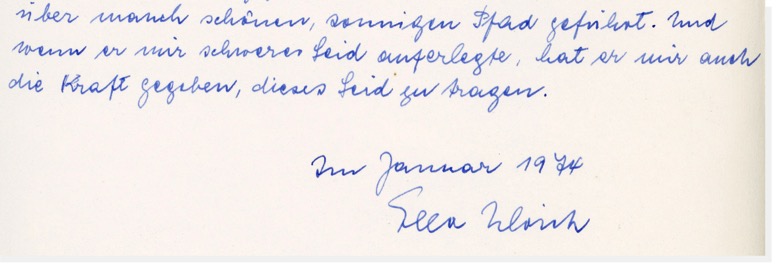 über manch schönen, sonnigen Pfad geführt. Und
wenn er mir schweres Leid auferlegte, hat er mir auch
die Kraft gegeben, dieses Leid zu tragen.
Im Januar 1974
Ella